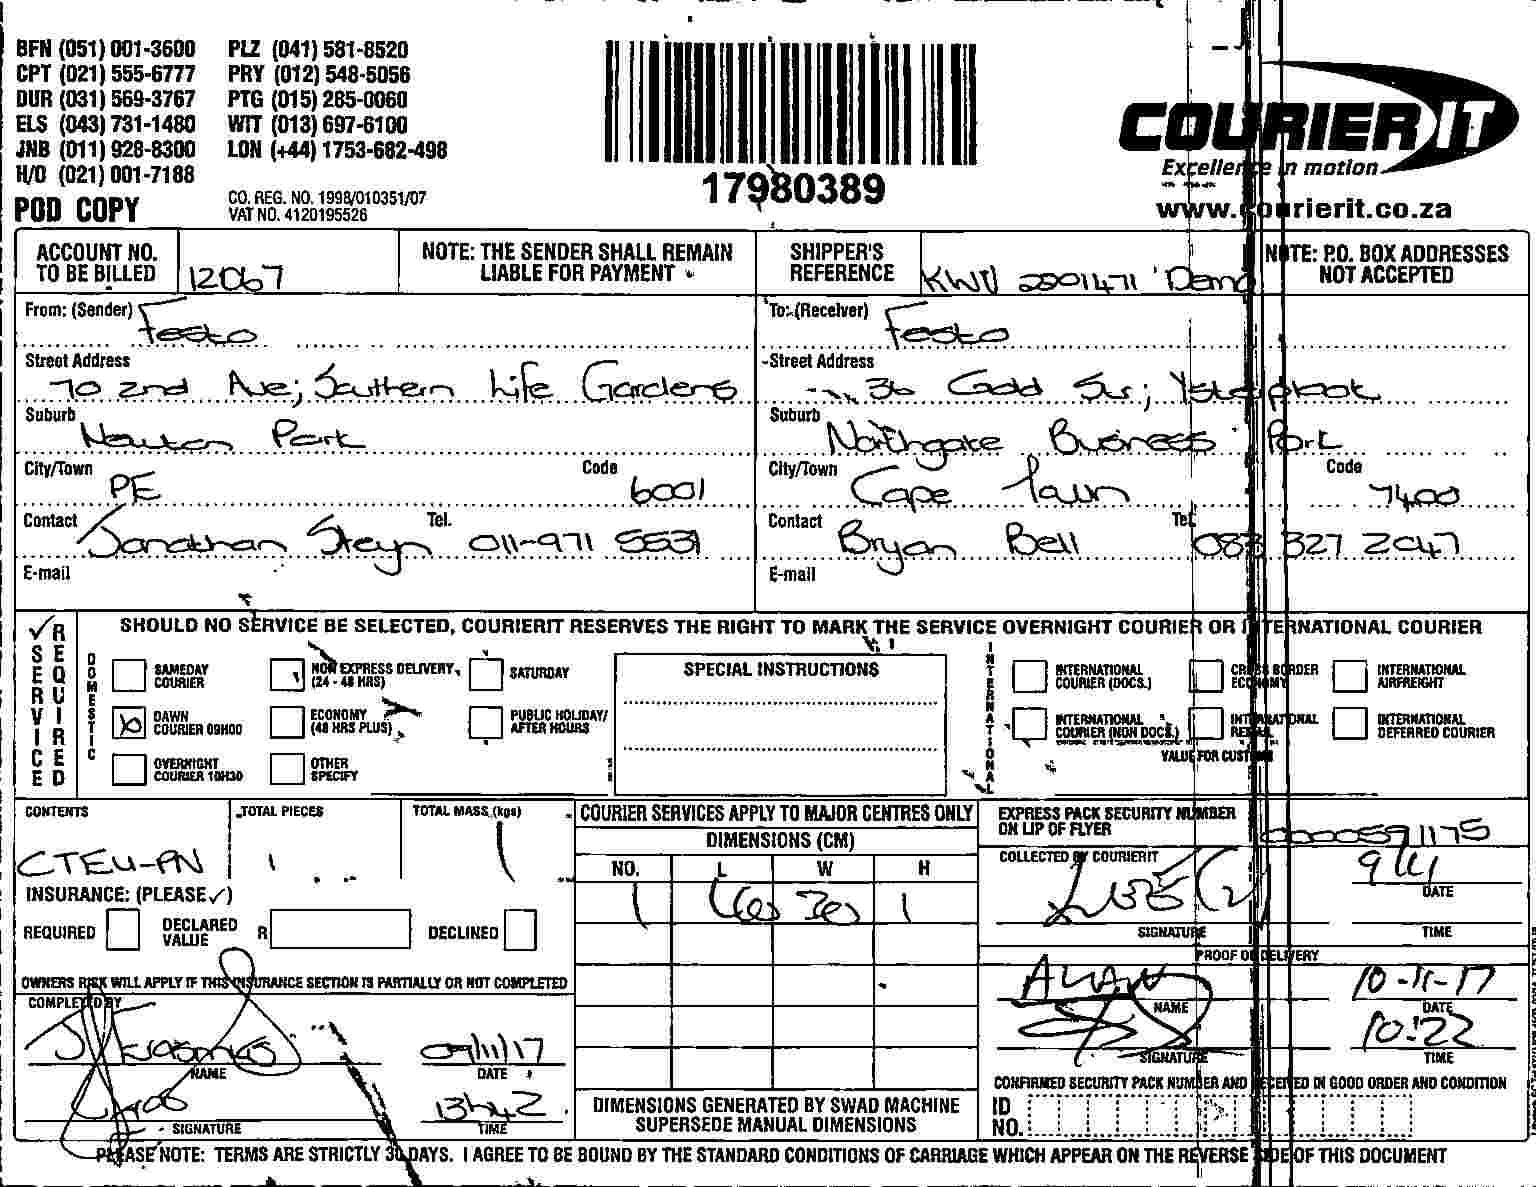 BFN (051) 001-3600 PLZ (041) 581-8520
CPT (021) 555-6777 PRY (012) 548-5056
DUR (031) 569-3767 PTG (015) 285-0060
ELS (043) 731-1480 WIT (013) 697-6100
JNB (011) 928-8300 LON (+44) 1753-682-498
H/O (021) 001-7188
POD COPY
CO. REG. NO. 1998/010351/07
VAT NO. 4120195526
17980389
COURIER IT
Excellence in motion
www.courierit.co.za
ACCOUNT NO. TO BE BILLED 12067
NOTE: THE SENDER SHALL REMAIN LIABLE FOR PAYMENT
SHIPPER'S REFERENCE KWV 2201471 Demo
NOTE: P.O. BOX ADDRESSES NOT ACCEPTED
From: (Sender) Festo
Street Address
70 2nd Ave; Southern Life Gardens
Suburb
Newton Park
City/Town Code
PE 6001
Contact Tel.
Jonathan Steyn 011-971 5531
E-mail
To: (Receiver) Festo
Street Address
36 Gold Str;
Suburb
Northgate Business Park
City/Town Code
Cape Town 7400
Contact Tel.
Bryan Bell 083 327 2047
E-mail
SERVICE REQUIRED
SHOULD NO SERVICE BE SELECTED, COURIERIT RESERVES THE RIGHT TO MARK THE SERVICE OVERNIGHT COURIER OR INTERNATIONAL COURIER
DOMESTIC
SAMEDAY COURIER
NON EXPRESS DELIVERY (24 - 48 HRS)
SATURDAY
DAWN COURIER 09H00
ECONOMY (48 HRS PLUS)
PUBLIC HOLIDAY/ AFTER HOURS
OVERNIGHT COURIER 10H30
OTHER SPECIFY
SPECIAL INSTRUCTIONS
INTERNATIONAL
INTERNATIONAL COURIER (DOCS.)
CROSS BORDER ECONOMY
INTERNATIONAL AIRFREIGHT
INTERNATIONAL COURIER (NON DOCS.)
INTERNATIONAL RETAIL
INTERNATIONAL DEFERRED COURIER
VALUE FOR CUSTOMS
CONTENTS TOTAL PIECES TOTAL MASS (kgs)
CTEU-PN 1 1
INSURANCE: (PLEASE ✓)
REQUIRED DECLARED VALUE R DECLINED
OWNERS RISK WILL APPLY IF THIS INSURANCE SECTION IS PARTIALLY OR NOT COMPLETED
COMPLETED BY
09/11/17
NAME DATE
13h42
SIGNATURE TIME
COURIER SERVICES APPLY TO MAJOR CENTRES ONLY
DIMENSIONS (CM)
NO. L W H
1 40 30 1
DIMENSIONS GENERATED BY SWAD MACHINE SUPERSEDE MANUAL DIMENSIONS
EXPRESS PACK SECURITY NUMBER ON LIP OF FLYER 0000591175
COLLECTED BY COURIERIT 9/11
DATE
SIGNATURE TIME
PROOF OF DELIVERY
10-11-17
NAME DATE
10:22
SIGNATURE TIME
CONFIRMED SECURITY PACK NUMBER AND RECEIVED IN GOOD ORDER AND CONDITION
ID NO.
PLEASE NOTE: TERMS ARE STRICTLY 30 DAYS. I AGREE TO BE BOUND BY THE STANDARD CONDITIONS OF CARRIAGE WHICH APPEAR ON THE REVERSE SIDE OF THIS DOCUMENT